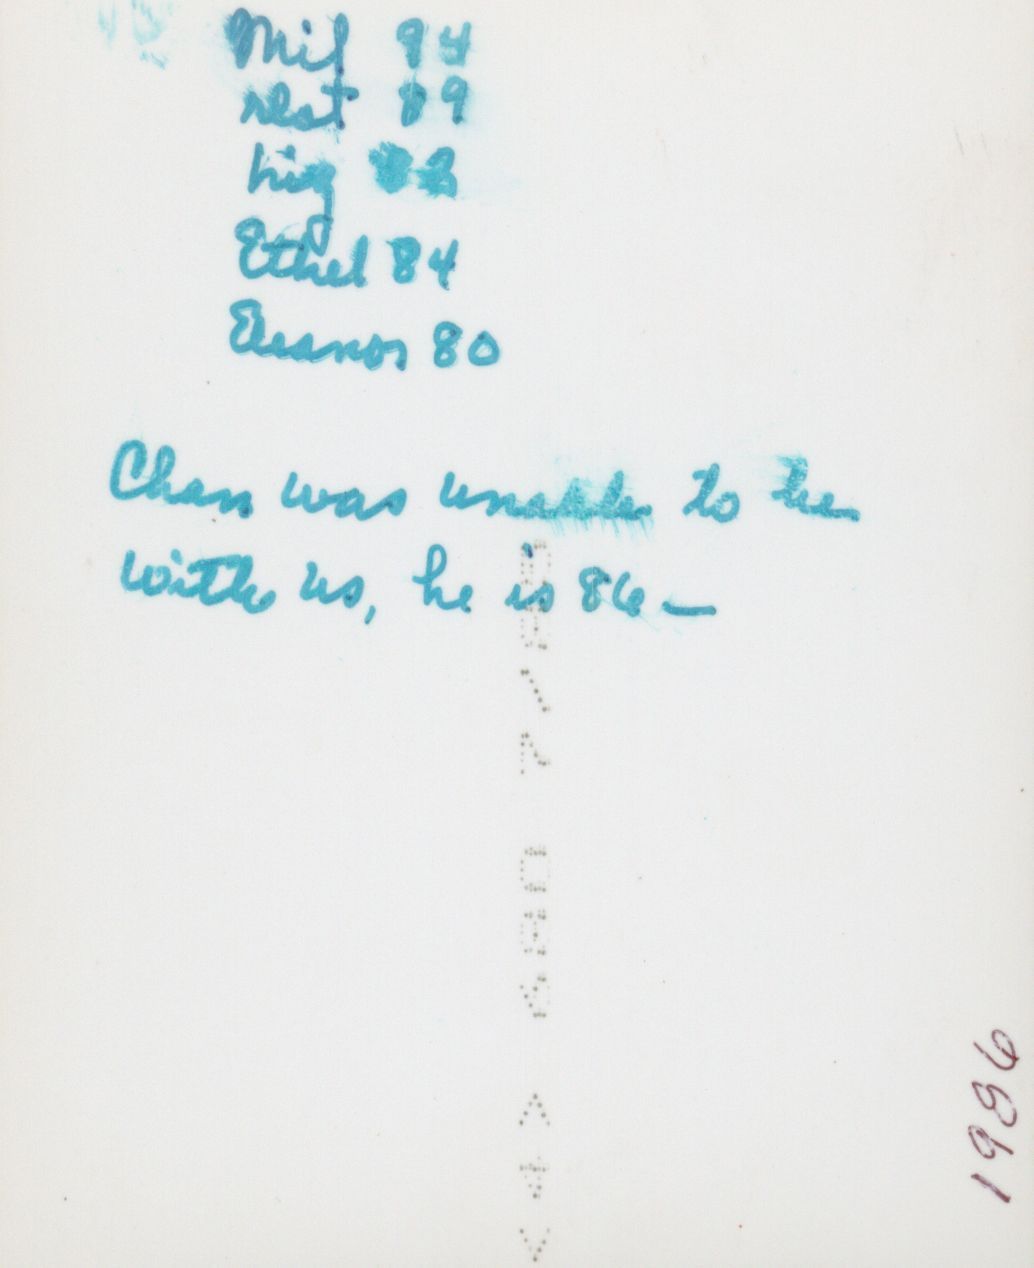 Mil 94
Dot 89
Ethel 84
Eleanor 80
Chas was unable to be
with us, he is 86 —
1986